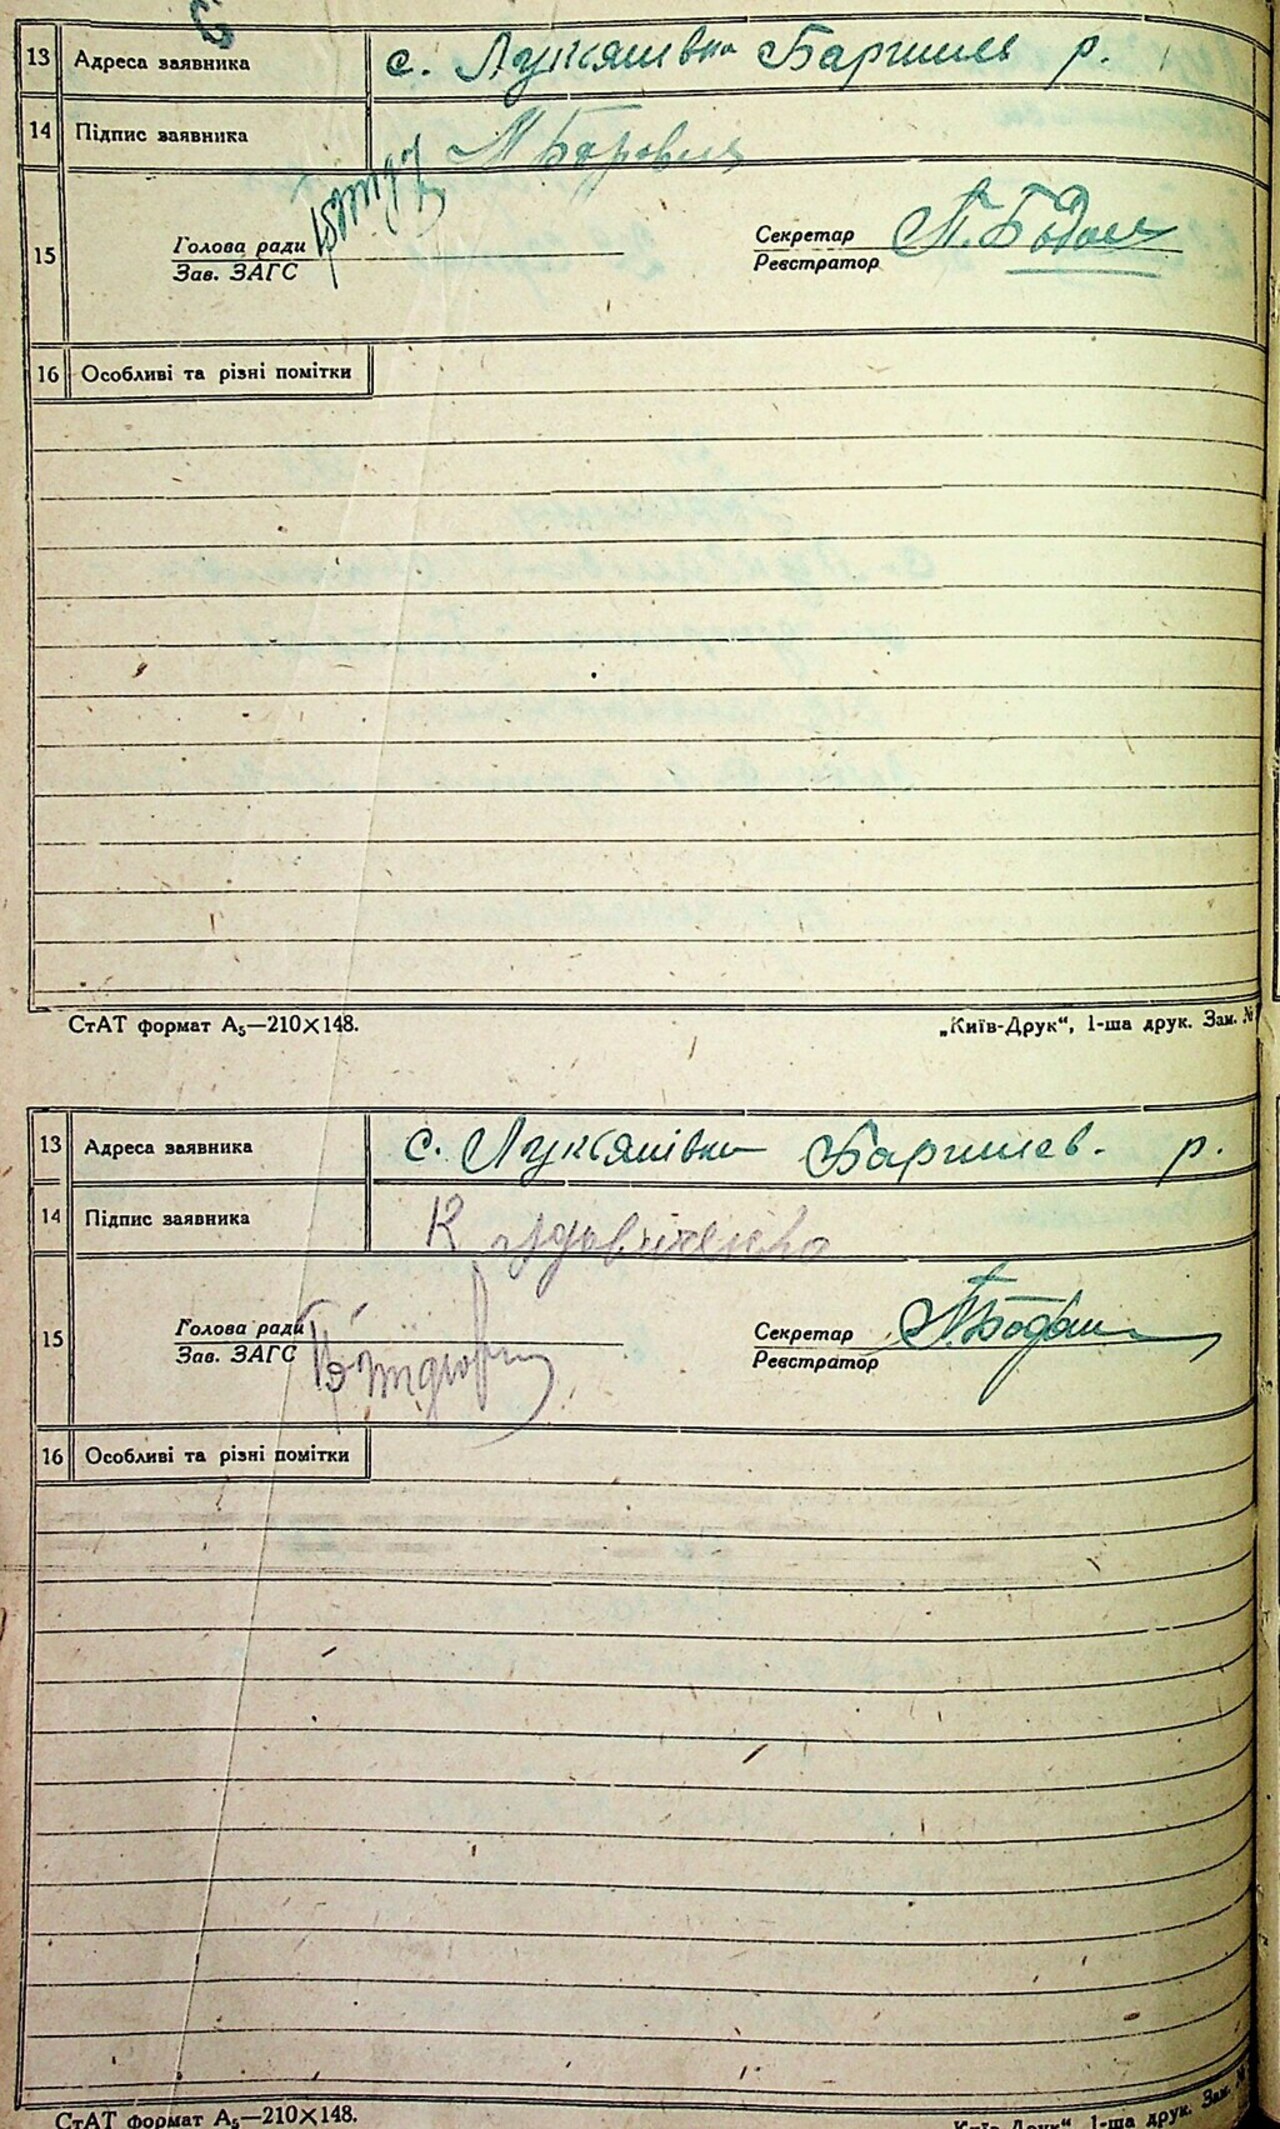 13 Адреса заявника с. Лукяшівка Баришев р.
14 Підпис заявника М Борович
15 Голова ради Секретар П. Бодан
Зав. ЗАГС Реєстратор
16 Особливі та різні помітки
СтАТ формат А₅—210×148. „Київ-Друк“, 1-ша друк. Зам. №
13 Адреса заявника с. Лукяшівка Баришев. р.
14 Підпис заявника К
15 Голова ради Секретар П. Бодан
Зав. ЗАГС Реєстратор
16 Особливі та різні помітки
СтАТ формат А₅—210×148. Київ-Друк“, 1-ша друк. Зам. №